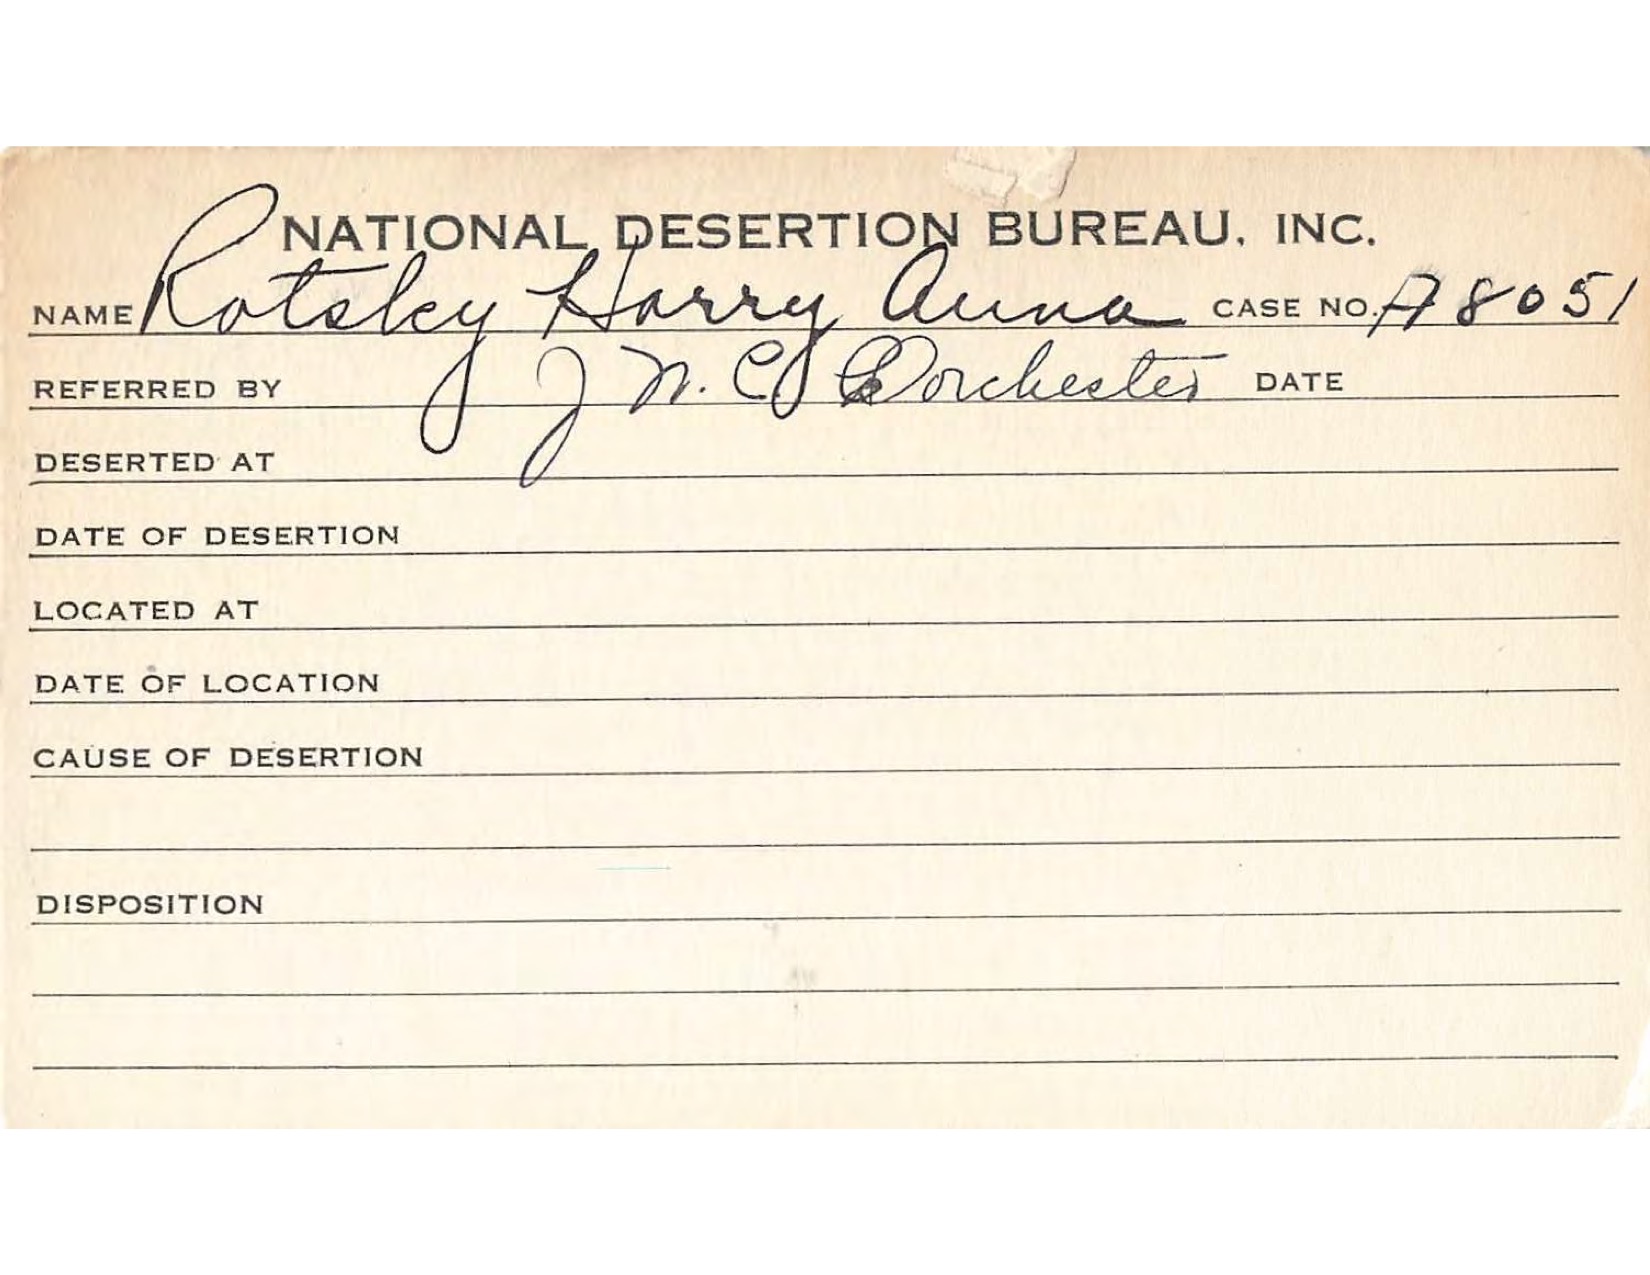 NATIONAL DESERTION BUREAU, INC.
NAME Rotsky Harry Anna CASE NO. A8051
REFERRED BY J W. C Dorchester DATE
DESERTED AT
DATE OF DESERTION
LOCATED AT
DATE OF LOCATION
CAUSE OF DESERTION
DISPOSITION